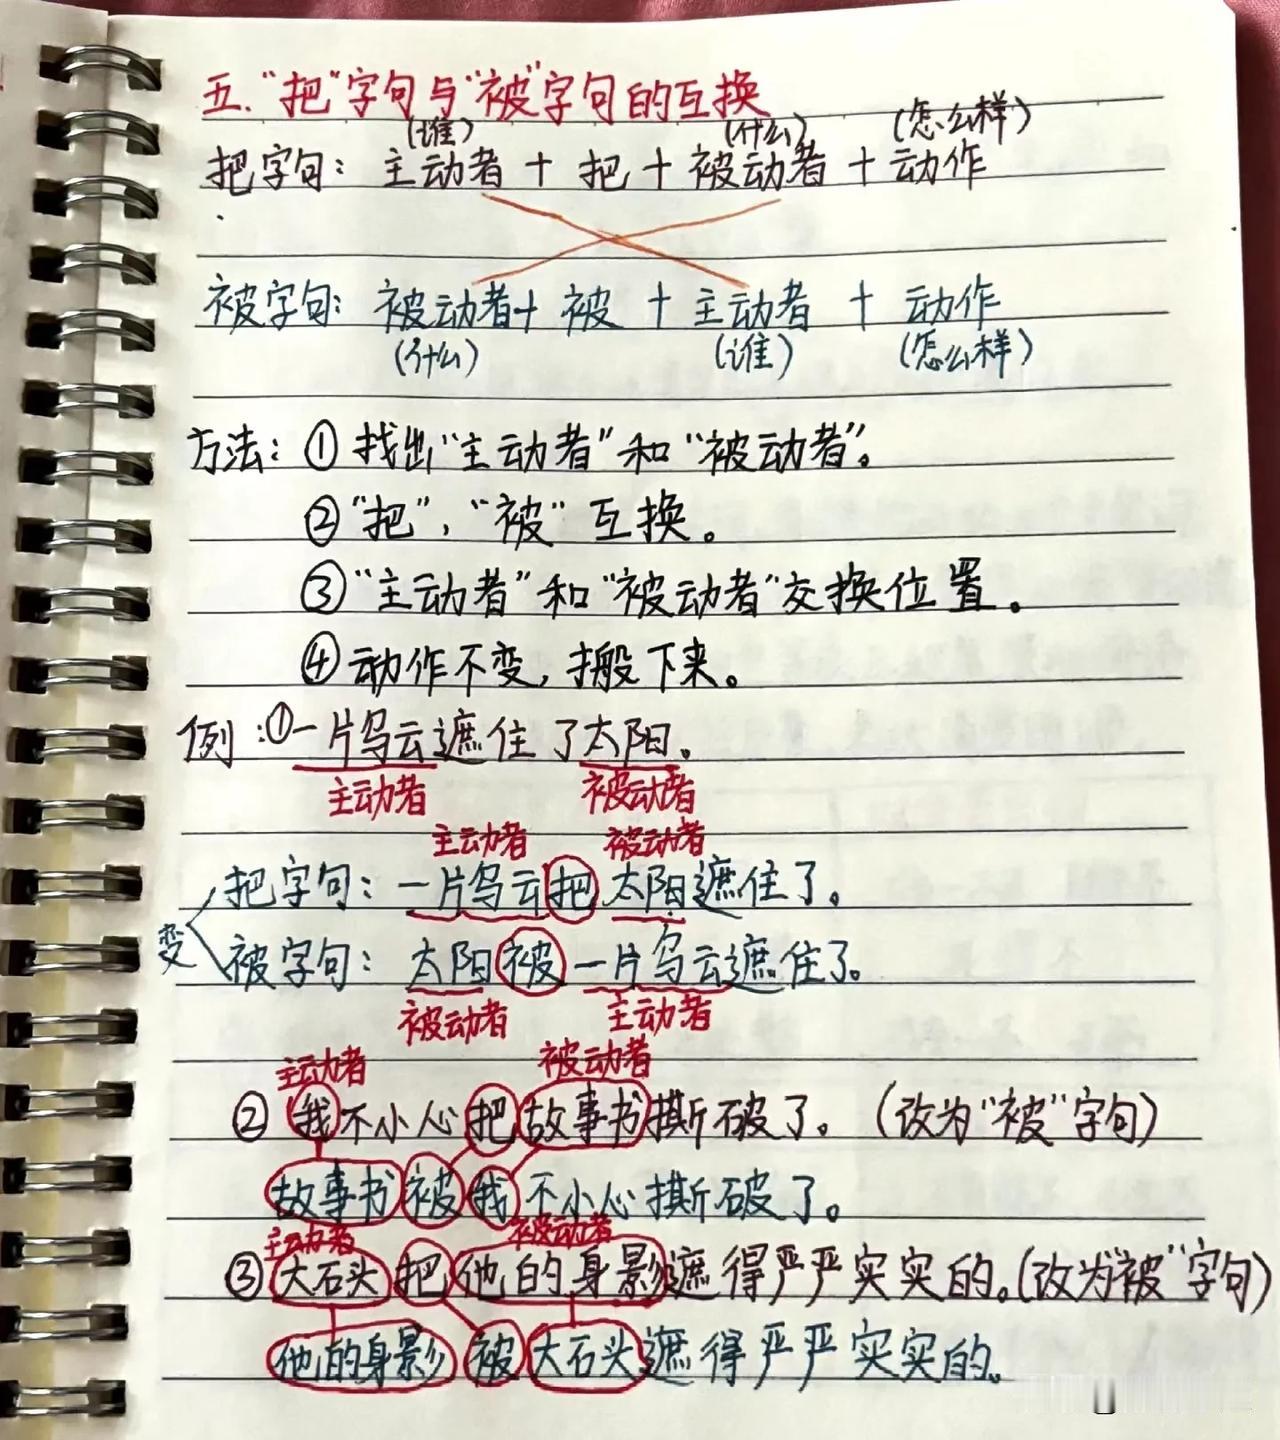 五.“把”字句与“被”字句的互换
(谁) (什么) (怎么样)
把字句：主动者 + 把 + 被动者 + 动作
被字句：被动者 + 被 + 主动者 + 动作
(什么) (谁) (怎么样)
方法：①找出“主动者”和“被动者”。
②“把”，“被”互换。
③“主动者”和“被动者”交换位置。
④动作不变，搬下来。
例：①一片乌云遮住了太阳。
主动者 被动者
主动者 被动者
把字句：一片乌云把太阳遮住了。
变
被字句：太阳被一片乌云遮住了。
被动者 主动者
主动者 被动者
②我不小心把故事书撕破了。（改为“被”字句）
故事书被我不小心撕破了。
主动者 被动者
③大石头把他的身影遮得严严实实的。（改为“被”字句）
他的身影被大石头遮得严严实实的。